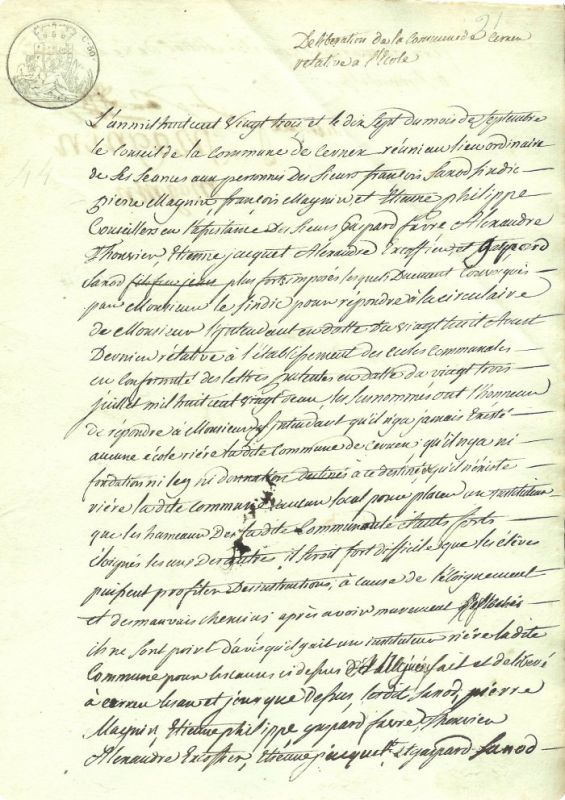 21
Deliberation de la Commune de Cernex
relative a l'Ecole
L'an mil huit cent Vingt trois et le dix Sept du mois de Septembre
le Conseil de la Commune de Cernex réuni au lieu ordinaire
de ses Seances aux personnes des Sieurs françois Sanod Sindic
pierre Magnin françois Magnin et Etienne philippe
Conseillers en l'assistance des Sieurs Gaspard favre Alexandre
Thouvier, Etienne jacquet Alexandre Excoffier et Gaspard
Sanod plus forts imposés lesquels Duement Convoqués
par Monsieur le Sindic pour répondre à la circulaire
de Monsieur l'Intendant en datte du vingt huit Aoust
Dernier relative à l'établissement des ecoles Communales
en Conformité des lettres patentes en datte du vingt trois
juillet mil huit cent vingt deux, les susnommés ont l'honneur
de répondre à Monsieur l'Intendant qu'il n'ya jamais Existé
aucune école rière la dite Commune de Cernex; qu'il n'ya ni
fondation ni leg ni donnation destinés a ce destiné, qu'il n'éxiste
rière la dite commune aucun local pour placer un instituteur
que les hameaux De la dite Commune étants forts
éloignés les uns des autres, il seroit fort difficile que les élèves
puissent profiter Des instructions, à cause de l'éloignement
et des mauvais chemins; après avoir murement Réfléchis
ils ne sont point d'avis qu'il y ait un instituteur rière la dite
Commune pour les causes ci dessus Alleguées fait et deliberé
à cernex les an et jour que Dessus Sanod, pierre
Magnin, Etienne philippe gaspard favre, Thouvier
Alexandre Excoffier, Etienne jacquet et gaspard Sanod